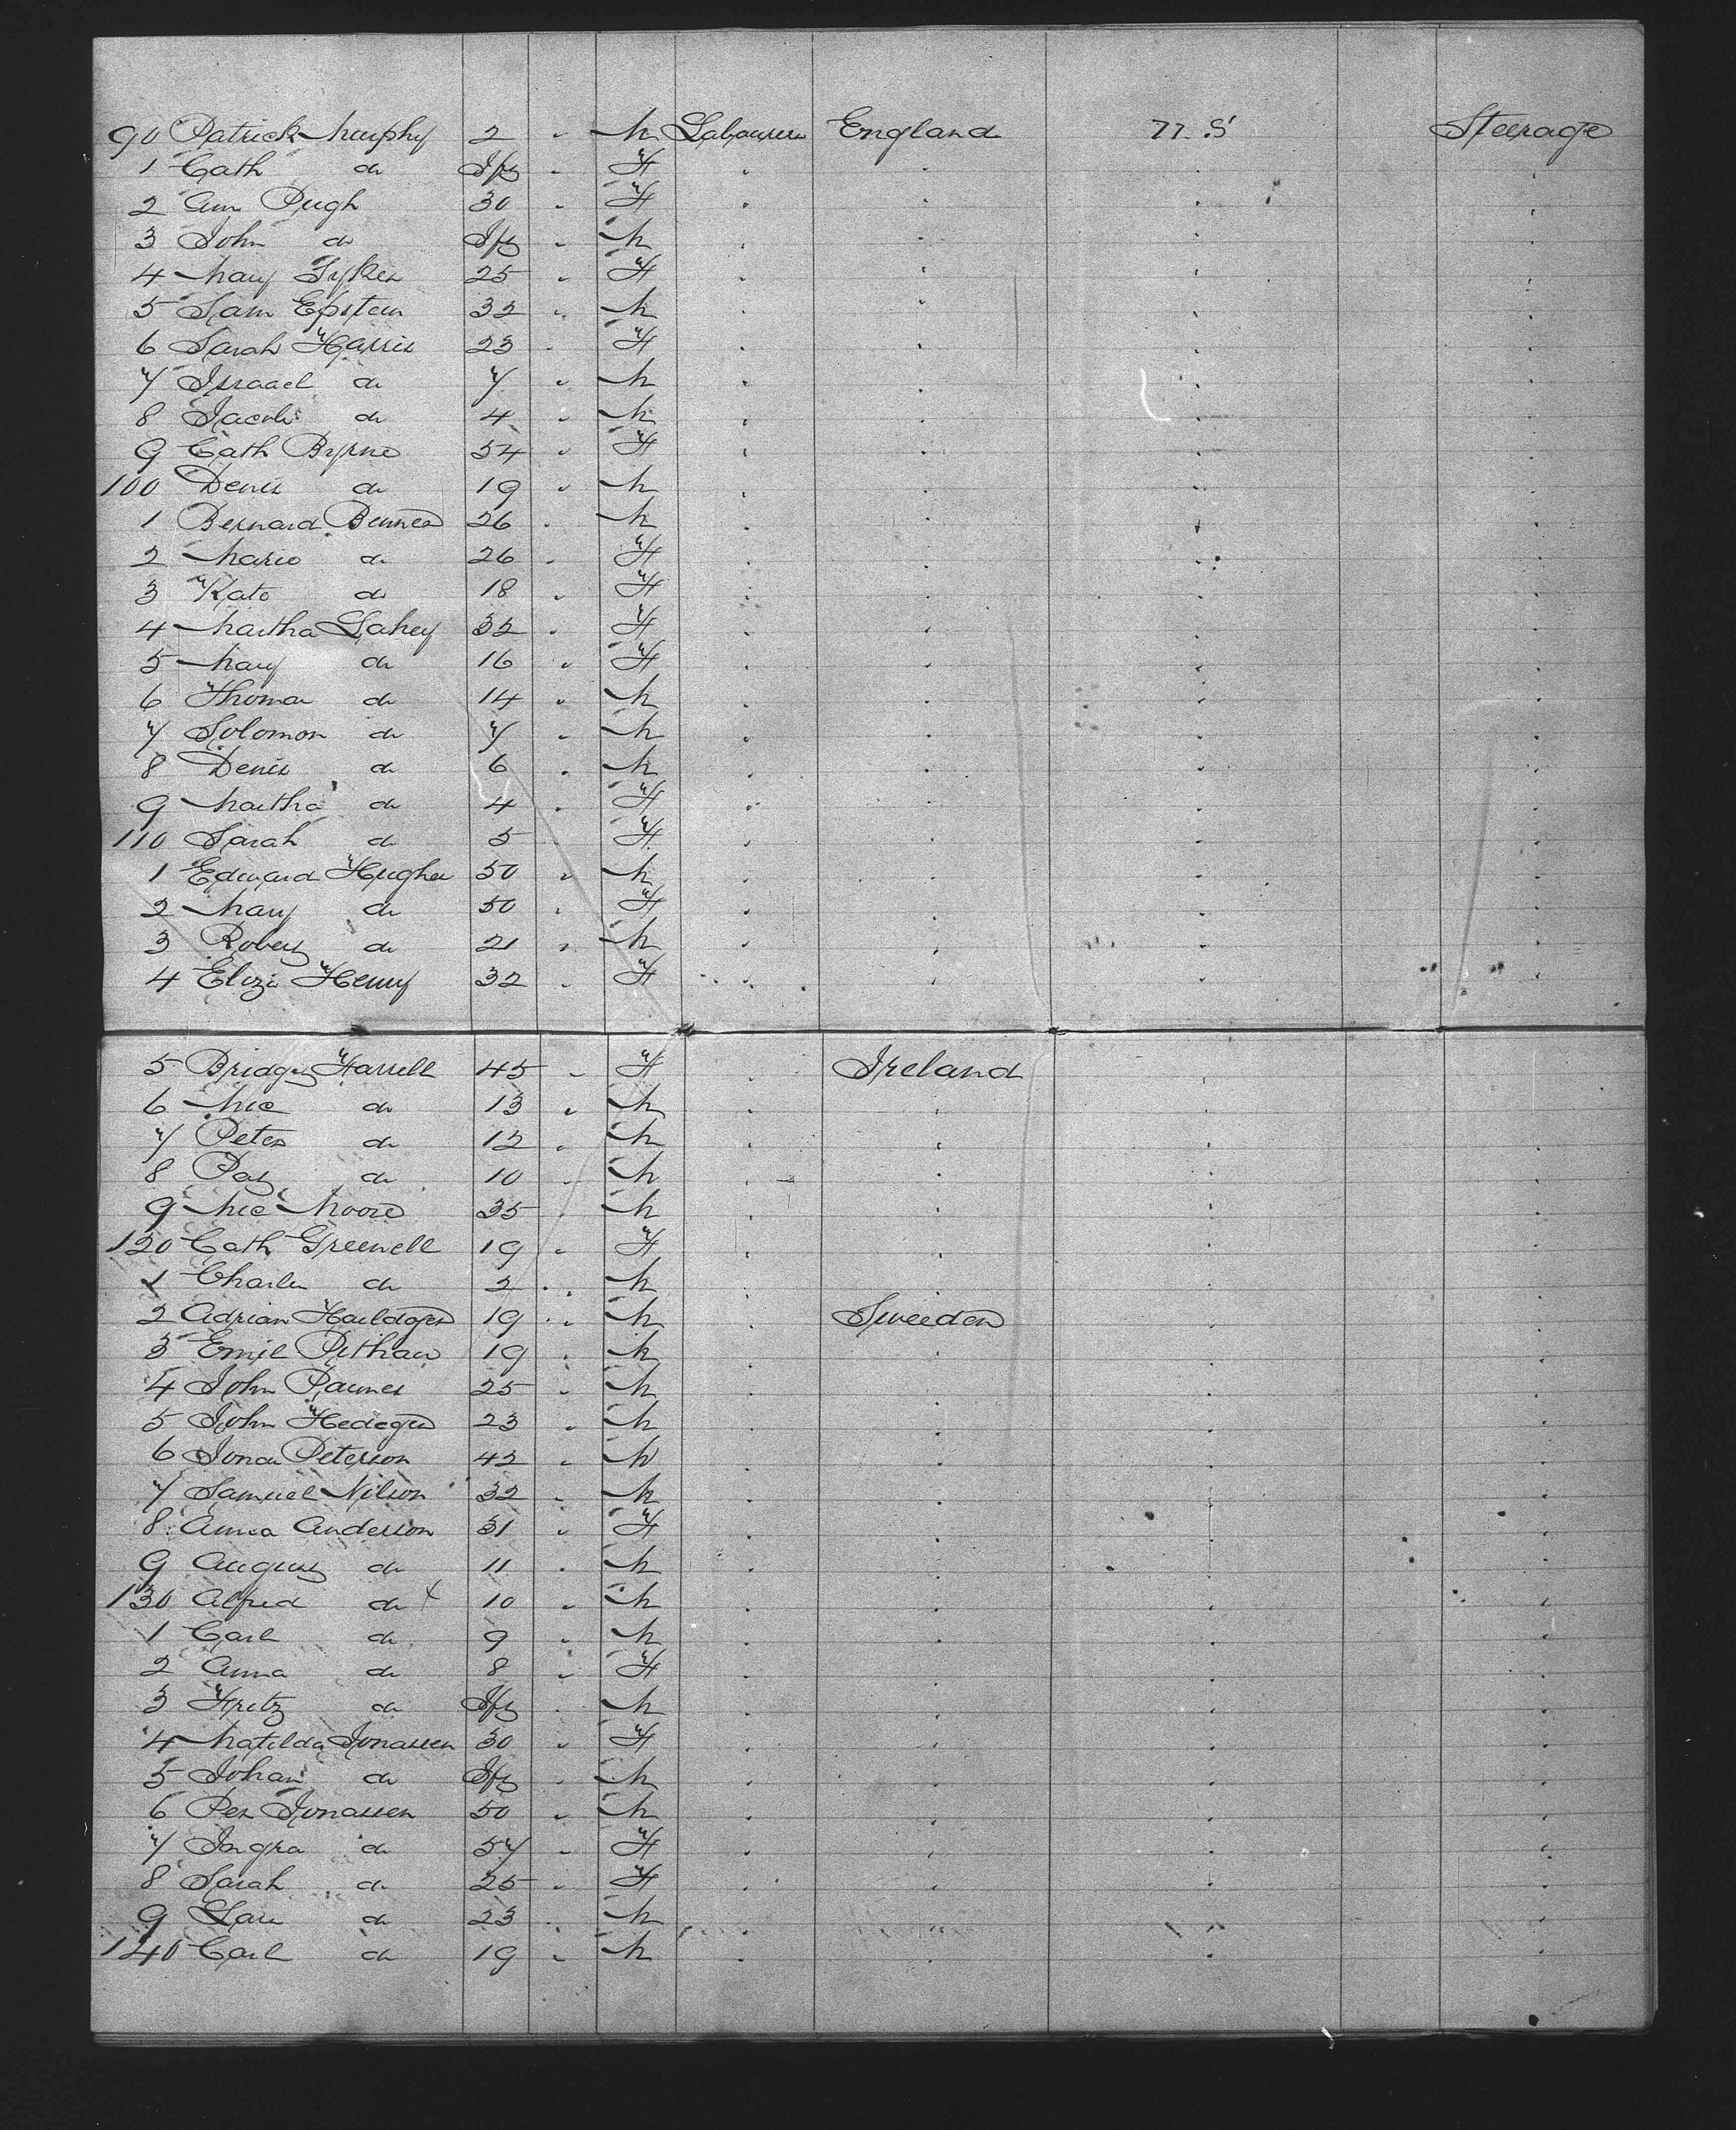 90 Patrick Murphy 2 " M Labourer England U.S Steerage
1 Cath do Inft " F " " " "
2 Ann Pugh 30 " F " " " "
3 John do Inft " M " " " "
4 Mary Sykes 25 " F " " " "
5 Sam Epstein 32 " M " " " "
6 Sarah Harris 23 " F " " " "
7 Israael do 7 " M " " " "
8 Jacob do 4 " M " " " "
9 Cath Byrne 54 " F " " " "
100 Denis do 19 " M " " " "
1 Bernard 26 " M " " " "
2 Marie do 26 " F " " " "
3 Kate do 18 " F " " " "
4 Martha Lahey 32 " F " " " "
5 Mary do 16 " F " " " "
6 Thomas do 14 " M " " " "
7 Solomon do 7 " M " " " "
8 Denis do 6 " M " " " "
9 Martha do 4 " F " " " "
110 Sarah do 5 F " " " "
1 Edward Hughes 50 " M " " " "
2 Mary do 50 " F " " " "
3 Robert do 21 " M " " " "
4 Eliza Henry 32 " F " " " "
5 Bridget Farrell 45 " F " Ireland " "
6 Mic do 13 " M " " " "
7 Peter do 12 " M " " " "
8 Pat do 10 " M " " " "
9 Mic Moore 35 " M " " " "
120 Cath Greewell 19 " F " " " "
1 Charles do 2 " M " " " "
2 Adrian 19 " M " Sweeden " "
3 Emil 19 " M " " " "
4 John 25 " M " " " "
5 John 23 " M " " " "
6 Jonas Peterson 42 " M " " " "
7 Samuel Nilson 32 " M " " " "
8 Anna Anderson 31 " F " " " "
9 August do 11 " M " " " "
130 Alfred do x 10 " M " " " "
1 Carl do 9 " M " " " "
2 Anna do 8 " F " " " "
3 Fritz do Inft " M " " " "
4 Matilda Jonassen 30 " F " " " "
5 Johan do Inft " M " " " "
6 Per Jonassen 50 " M " " " "
7 Ingra do 57 " F " " " "
8 Sarah do 25 " F " " " "
9 Lars do 23 " M " " " "
140 Carl do 19 " M " " "